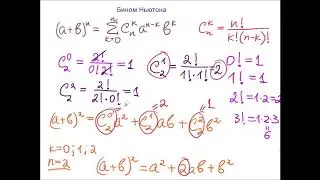 Бином Ньютона
(a+b)ⁿ = Σₖ₌₀ⁿ Cₙᵏ aⁿ⁻ᵏ bᵏ    Cₙᵏ = n!/(k!(n-k)!)
C₂⁰ = 2!/(0!2!) = 1    C₂¹ = 2!/(1!·1!) = 2    0! = 1
1! = 1
C₂² = 2!/(2!·0!) = 1    2! = 1·2 = 2
=1    =2    =1    3! = 1·2·3
6
(a+b)² = C₂⁰a² + C₂¹ab + C₂²b²
k=0;1;2
n=2    (a+b)² = a² + 2ab + b²